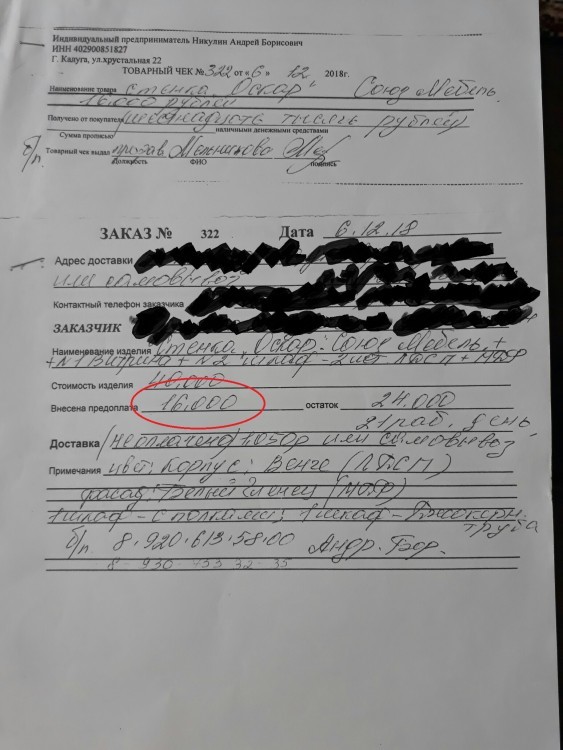 Индивидуальный предприниматель Никулин Андрей Борисович
ИНН 402900851827
Г. Калуга, ул.хрустальная 22
ТОВАРНЫЙ ЧЕК № 322 от «6» 12 2018г.
Наименование товара Стенка „Оскар" Союз Мебель.
16.000 рублей
Получено от покупателя шестнадцать тысяч рублей
Сумма прописью наличными денежными средствами
б/п Товарный чек выдал продав Мельникова
Должность ФИО подпись
ЗАКАЗ № 322 Дата 6.12.18
Адрес доставки
или самовывоз
Контактный телефон заказчика
ЗАКАЗЧИК
Наименование изделия Стенка „Оскар" Союз Мебель +
+ N1 Витрина + N2 Шкаф - 2 шт ЛДСП + МДФ
Стоимость изделия 40.000
Внесена предоплата 16.000 остаток 24.000
21 раб. день
Доставка (неоплачено) 1.050р или самовывоз
Примечания цвет: Корпус: Венге (ЛДСП)
фасад: Белый глянец (МДФ)
1 шкаф - с полками; 1 шкаф -
труба
б/п 8.920.613.58.00 Андр. Бор.